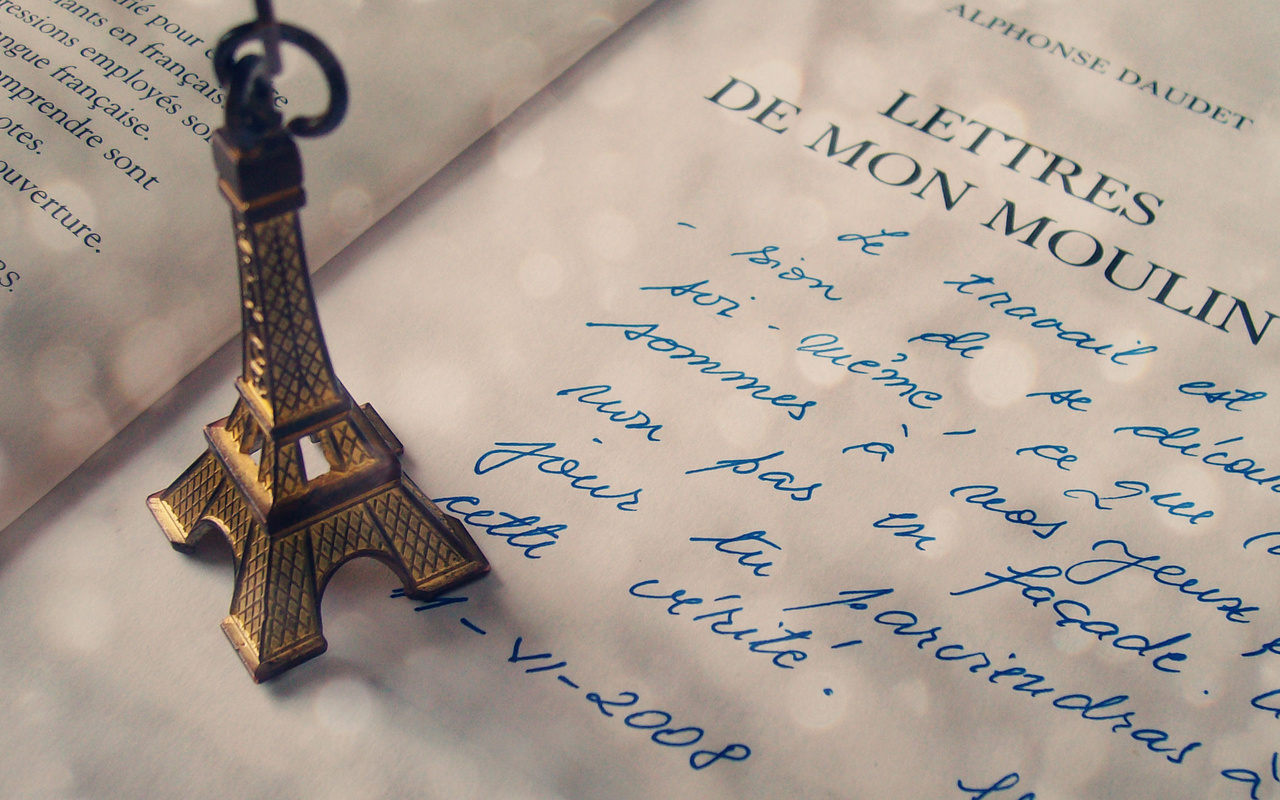 iants en français
ressions employés
ngue française.
omprendre sont
otes.
ouverture.
rs.
ALPHONSE DAUDET
LETTRES
DE MON MOULIN
Le travail est
- sion de se décou
soi-même, ce que
sommes à nos yeux
non pas en façade.
jour tu parviendras à
cette vérité.
11-VI-2008